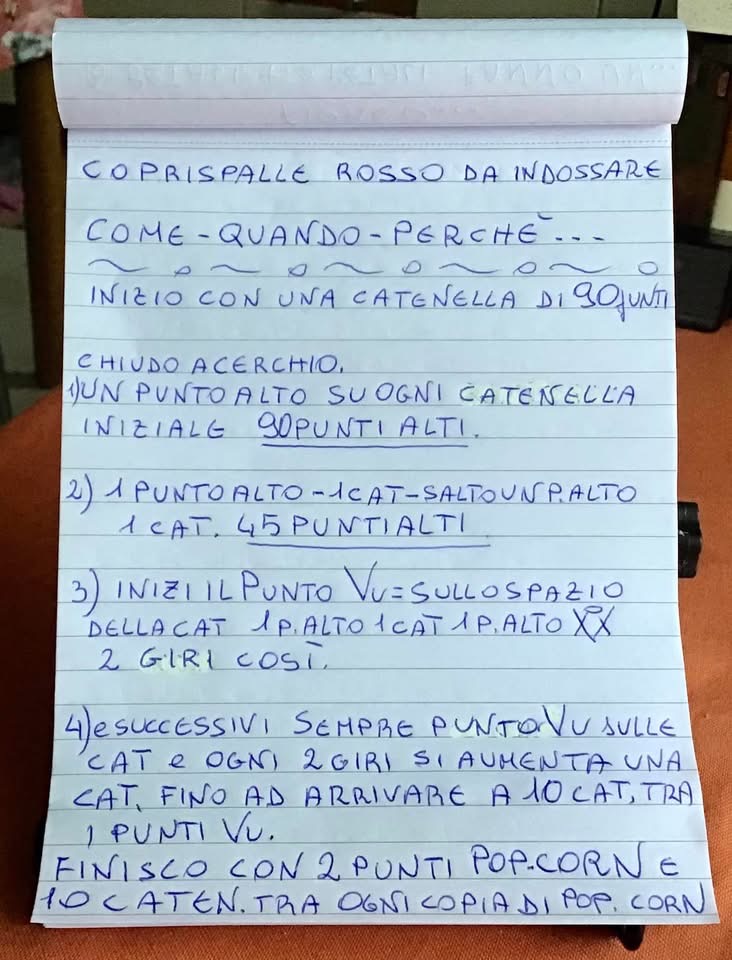 COPRISPALLE ROSSO DA INDOSSARE
COME-QUANDO-PERCHÉ...
INIZIO CON UNA CATENELLA DI 90 PUNTI
CHIUDO A CERCHIO.
1) UN PUNTO ALTO SU OGNI CATENELLA
INIZIALE 90 PUNTI ALTI.
2) 1 PUNTO ALTO-1 CAT-SALTO UN P.ALTO
1 CAT. 45 PUNTI ALTI
3) INIZI IL PUNTO VU=SULLO SPAZIO
DELLA CAT 1 P.ALTO 1 CAT 1 P.ALTO
2 GIRI COSÌ.
4) e SUCCESSIVI SEMPRE PUNTO VU SULLE
CAT e OGNI 2 GIRI SI AUMENTA UNA
CAT, FINO AD ARRIVARE A 10 CAT, TRA
I PUNTI VU.
FINISCO CON 2 PUNTI POP-CORN E
10 CATEN. TRA OGNI COPIA DI POP. CORN